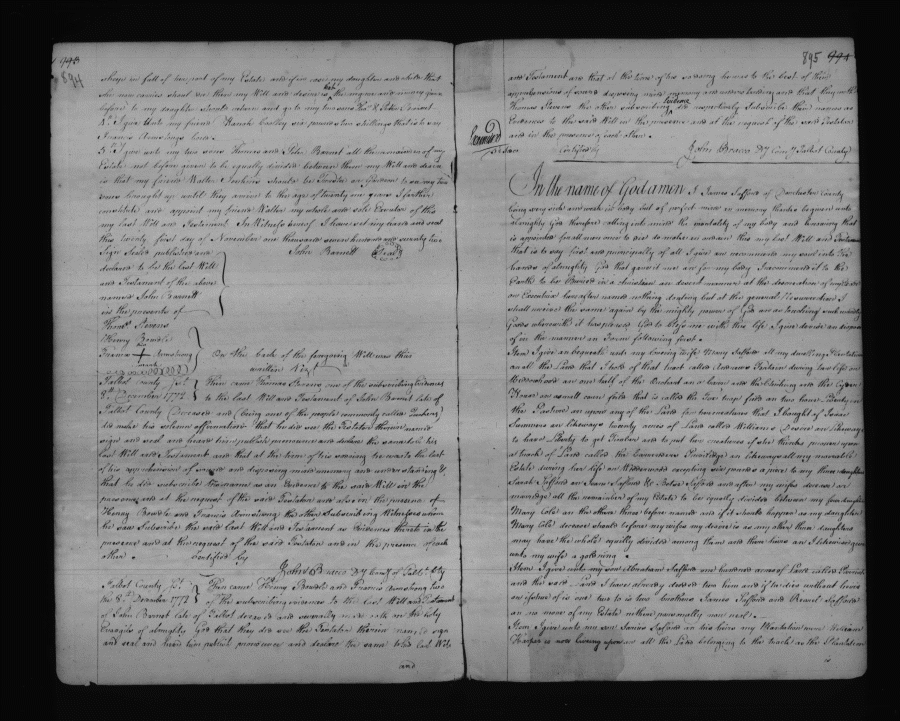 894
be in full of her part of my Estate and if in case my daughter and that
she now carries should die then my Will and desire is that the negroe and money given
before to my daughter should return and go to my two sons Thos. & John Barnet
I give unto my friend Hannah six pounds ten shillings that is to say
Francis Armstrongs
I give unto my two sons Thomas and John Barnet all the remainder of my
Estate not before given to be equally divided between them my Will and desire
is that my friend Walter Jenkins should be Guardian to my two
sons brought up untill they arrive to the age of twenty one years I further
constitute and appoint my friend Walter my whole and sole Executor of this
my last Will and Testament In Witness hereof I have set my hand and seal
this twenty first day of November one thousand seven hundred and seventy two
Sign Seal'd published and John Barnett Seal
declared to be the last Will
and Testament of the above
named John Barnett
in the presents of
Thoms. Stevens
Henry Bowdle
Francis + Armstrong
mark
On the back of the foregoing Will was thus
written Viz.
Talbot County Sct.
8th December 1772
Then came Thomas Stevens one of the subscribing Evidences
to the last Will and Testament of John Barnet late of
Talbot County Deceased and (being one of the people commonly called Quakers)
did make his solemn affirmation that he did see the Testator therein named
sign and seal and heard him publish pronounce and declare the same to be his
last Will and Testament and that at the time of his so doing he was to the best
of his apprehension of sound and disposing mind memory and understanding &
that he did subscribe his name as an Evidence to the said Will in the
presence and at the request of the said Testator and also in the presence of
Henry Bowdle and Francis Armstrong the other Subscribing Witnesses whom
he saw Subscribe the said Last Will and Testament as Evidences thereto in the
presence and at the request of the said Testator and in the presence of each
other. Certified by
John Bracco Dy Comy of Talbt. Cty
Talbot County Sct.
the 8th December 1772
Then came Henry Bowdle and Francis Armstrong two
of the subscribing evidences to the last Will and Testament
of John Barnet late of Talbot deced and severally made oath on the holy
Evangels of almighty God that they did see the Testator therein named sign
and seal and heard him publish pronounce and declare the same to be his last Will
and
895
and Testament and that at the time of his so doing he was to the best of their
apprehensions of sound disposing mind memory and understanding and that they with
Thomas Stevens the other subscribing Evidence did respectively subscribe their names as
Evidences to the said Will in the presence and at the request of the said Testator
and in the presence of each other.
Certified by John Bracco Dy Comy Talbot County
Examined
In the name of God amen I James Safford of Dorchester County
being very sick and weak in body but of perfect mind and memory thanks be given unto
almighty God therefore calling unto mind the mortality of my body and knowing that it
is appointed for all men once to die do make and ordain this my last Will and Testament
that is to say first and principally of all I give and recommend my soul into the
hands of almighty God that gave it and as for my body I recommend it to the
Earth to be Buried in a christian and decent manner at the discreation of my
Executrix hereafter named nothing doubting but at the general Resurrection I
shall receive the same again by the mighty power of God and as touching such worldly
Goods wherewith it has pleased God to bless me with this life I give devise and dispose
of in the manner and Form following first.
Item I give and bequeath unto my loving wife Mary Safford all my dwelling Plantation
and all the Land that I hold of that tract called during her life or
Widowhood and one half of the Orchard and
House and small corn field that is called the field and
the Pasture and upon any of the Land that I bought of
Summers and likeways twenty acres of Land called Williams Desire and likeways
to have Liberty to get Timber and to put two
a track of Land called the and likeways all my moveable
Estate during her life or Widowhood excepting six pounds a piece to my three daughters
Sarah Safford and Safford & Betsy Safford and after my wifes decease or
marriage all the remainder of my Estate to be equally divided between my four daughters
Mary Cole and the other three before named and if it should happen as my daughter
Mary Cole decease should before my wifes my desire is as my other three daughters
may have the whole equally divided among them and their heirs and I likewise give
unto my wife a
Item I give unto my son Abraham Safford one hundred acres of Land called
and the Land I have already deeded him and if he dies without heirs
to his two brothers James Safford and Safford
and no more of my Estate neither personally nor real.
Item I give unto my son James Safford and his heirs my Plantation were William
Harper is now living upon and all the Land belonging to the track as the Plantation